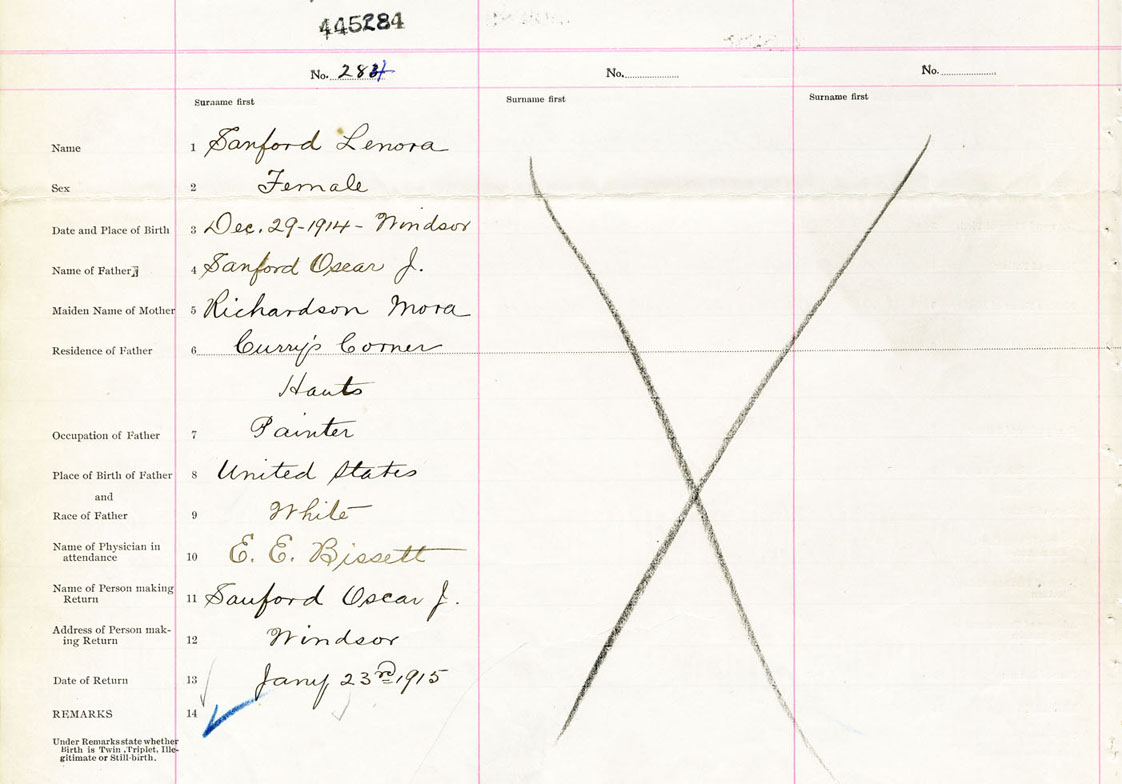 445284
No. 284 No. No.
Surname first Surname first Surname first
Name 1 Sanford Lenora
Sex 2 Female
Date and Place of Birth 3 Dec. 29-1914- Windsor
Name of Father 4 Sanford Oscar J.
Maiden Name of Mother 5 Richardson Mora
Residence of Father 6 Curry's Corner
Hants
Occupation of Father 7 Painter
Place of Birth of Father 8 United States
and
Race of Father 9 White
Name of Physician in
attendance 10 E. E. Bissett
Name of Person making
Return 11 Sanford Oscar J.
Address of Person mak-
ing Return 12 Windsor
Date of Return 13 Jany 23rd 1915
REMARKS 14
Under Remarks state whether
Birth is Twin, Triplet, Ille-
gitimate or Still-birth.